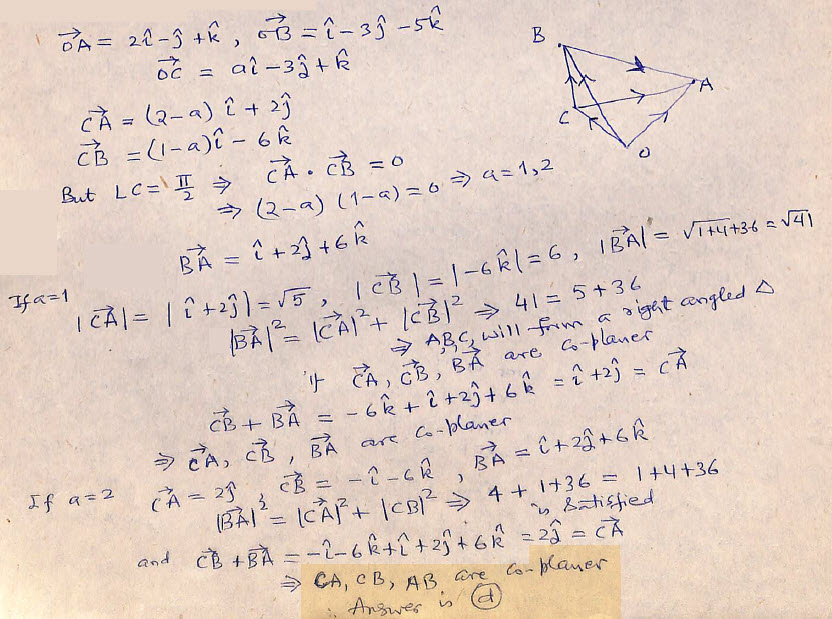 OA⃗ = 2î - ĵ + k̂ , OB⃗ = î - 3ĵ - 5k̂
OC⃗ = aî - 3ĵ + k̂
CA⃗ = (2-a) î + 2ĵ
CB⃗ = (1-a)î - 6k̂
But LC = π/2 ⇒ CA⃗ · CB⃗ = 0
⇒ (2-a) (1-a) = 0 ⇒ a = 1, 2
B
A
C
O
BA⃗ = î + 2ĵ + 6k̂
If a=1
|CA⃗| = |î + 2ĵ| = √5 , |CB⃗| = |-6k̂| = 6 , |BA⃗| = √1+4+36 = √41
|BA⃗|² = |CA⃗|² + |CB⃗|² ⇒ 41 = 5 + 36
⇒ A,B,C, will form a right angled Δ
if CA⃗, CB⃗, BA⃗ are co-planer
CB⃗ + BA⃗ = -6k̂ + î + 2ĵ + 6k̂ = î + 2ĵ = CA⃗
⇒ CA⃗, CB⃗, BA⃗ are co-planer
If a=2 CA⃗ = 2ĵ , CB⃗ = -î - 6k̂ , BA⃗ = î + 2ĵ + 6k̂
|BA⃗|² = |CA⃗|² + |CB|² ⇒ 4 + 1 + 36 = 1 + 4 + 36
is satisfied
and CB⃗ + BA⃗ = -î - 6k̂ + î + 2ĵ + 6k̂ = 2ĵ = CA⃗
⇒ CA, CB, AB are co-planer
∴ Answer is (d)